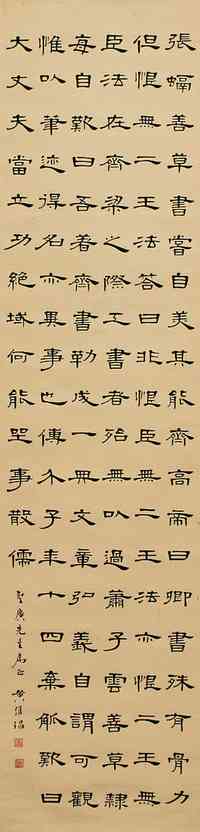 張螎善草書嘗自美其能齊高帝曰卿書殊有骨力
但恨無二王法答曰非恨臣無二王法亦恨二王無
臣法在齊梁之際工書者殆無以過蕭子雲善草隸
每自歎曰吾著齊書勒成一典文章弘義自謂可觀
惟以筆迹得名亦異事也傅介子年十四棄觚歎曰
大丈夫當立功絕域何能坐事散儒
廣先生屬正